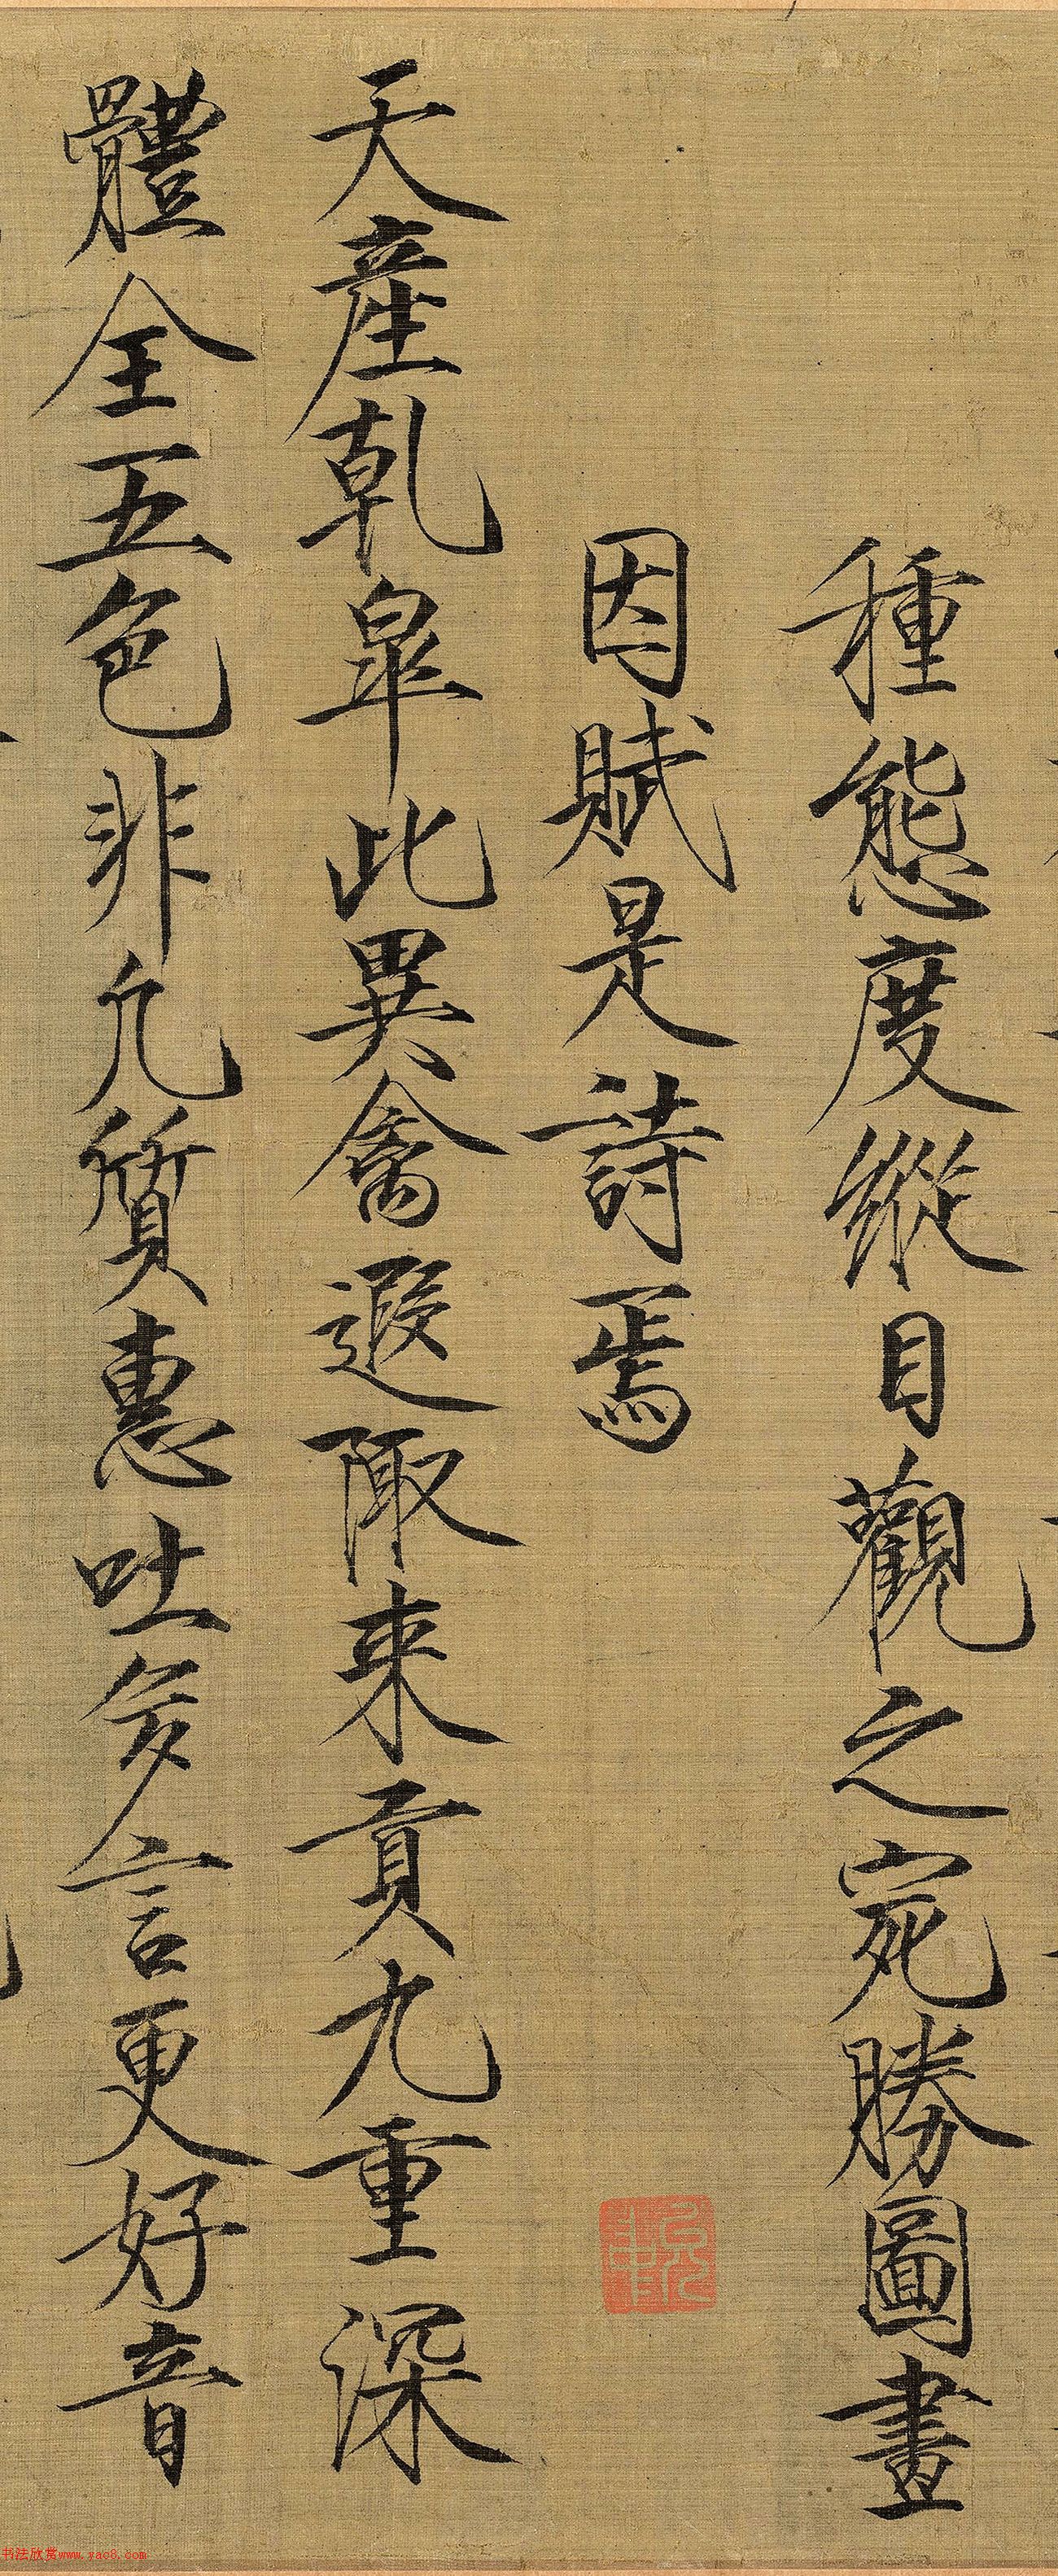 種態度縱目觀之宛勝圖畫
因賦是詩焉
天產乾皐此異禽遐陬来貢九重深
體全五色非凡質惠吐多言更好音
书法欣赏www.yac8.com